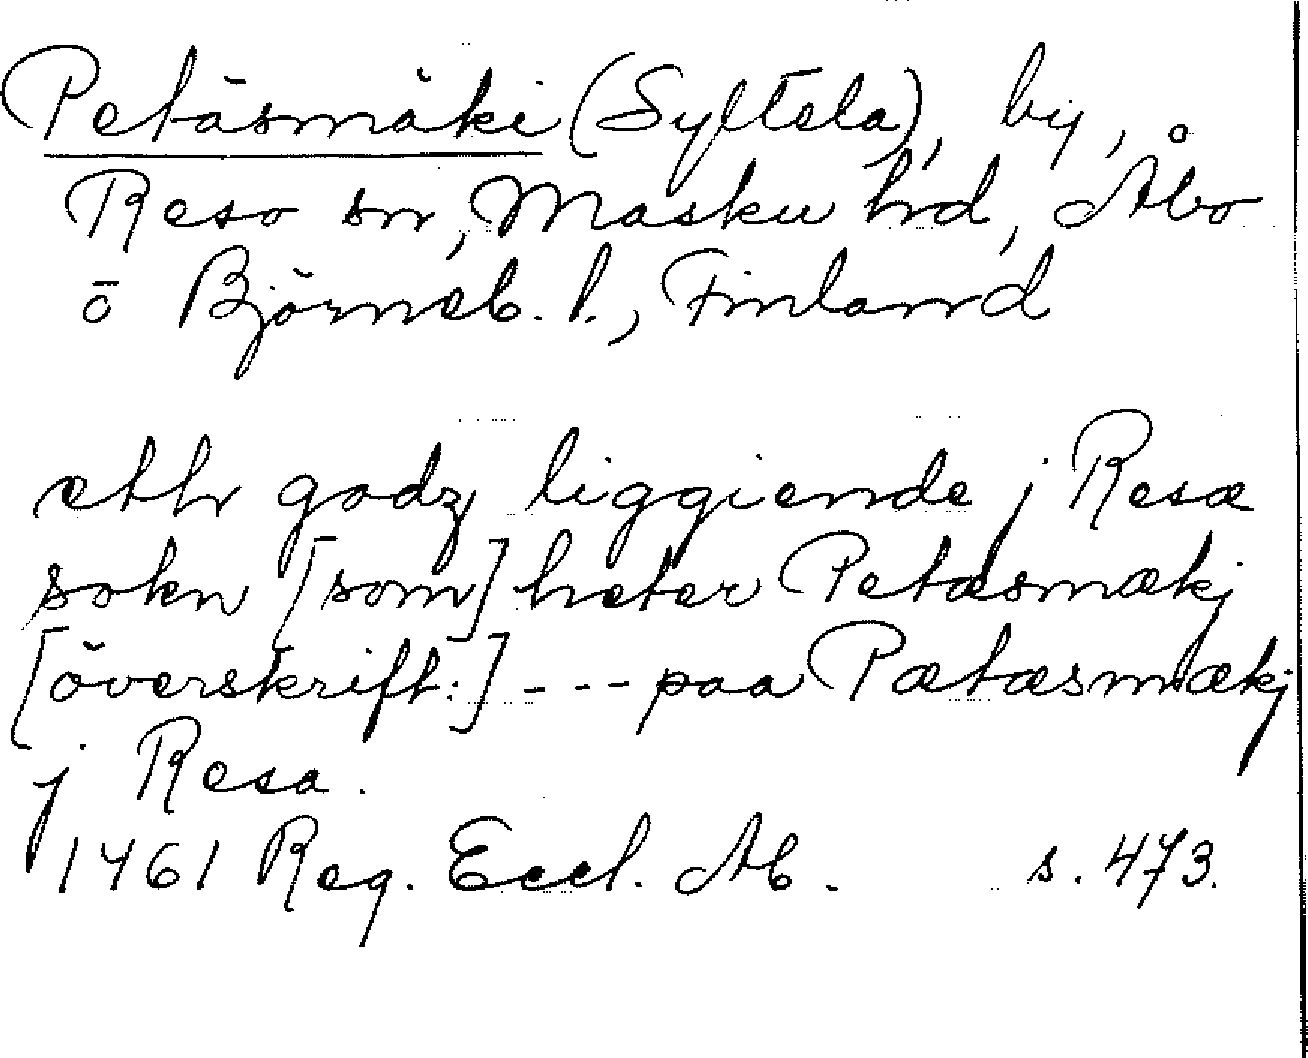 Petäsmäki (Syltela), by,
Reso sn, Masku hrd, Åbo
o Björneb. l., Finland
etth godz liggiende j Resæ
sokn [som] heter Petæsmækj
[överskrift:] - - - paa Pætæsmækj
j Resa.
1461 Reg. Eccl. Ab. s. 473.